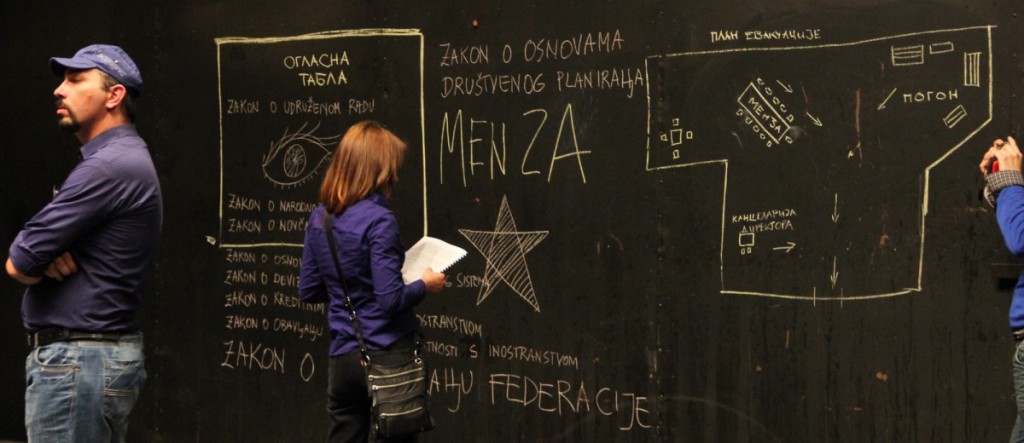 ОГЛАСНА
ТАБЛА
ZAKON O UDRUŽENOM RADU
ZAKON O NARODNO
ZAKON O NOVČA
ZAKON O OSNOV
ZAKON O DEVIZ
ZAKON O KREDITNIM
ZAKON O OBAVLJANJU
ZAKON O
ZAKON O OSNOVAMA
DRUŠTVENOG PLANIRANJA
MENZA
SISTEMA
OSTRANSTVOM
TNOSTI S INOSTRANSTVOM
FEDERACIJE
ПЛАН ЕВАКУАЦИЈЕ
МЕНЗА
ПОГОН
КАНЦЕЛАРИЈА
ДИРЕКТОРА